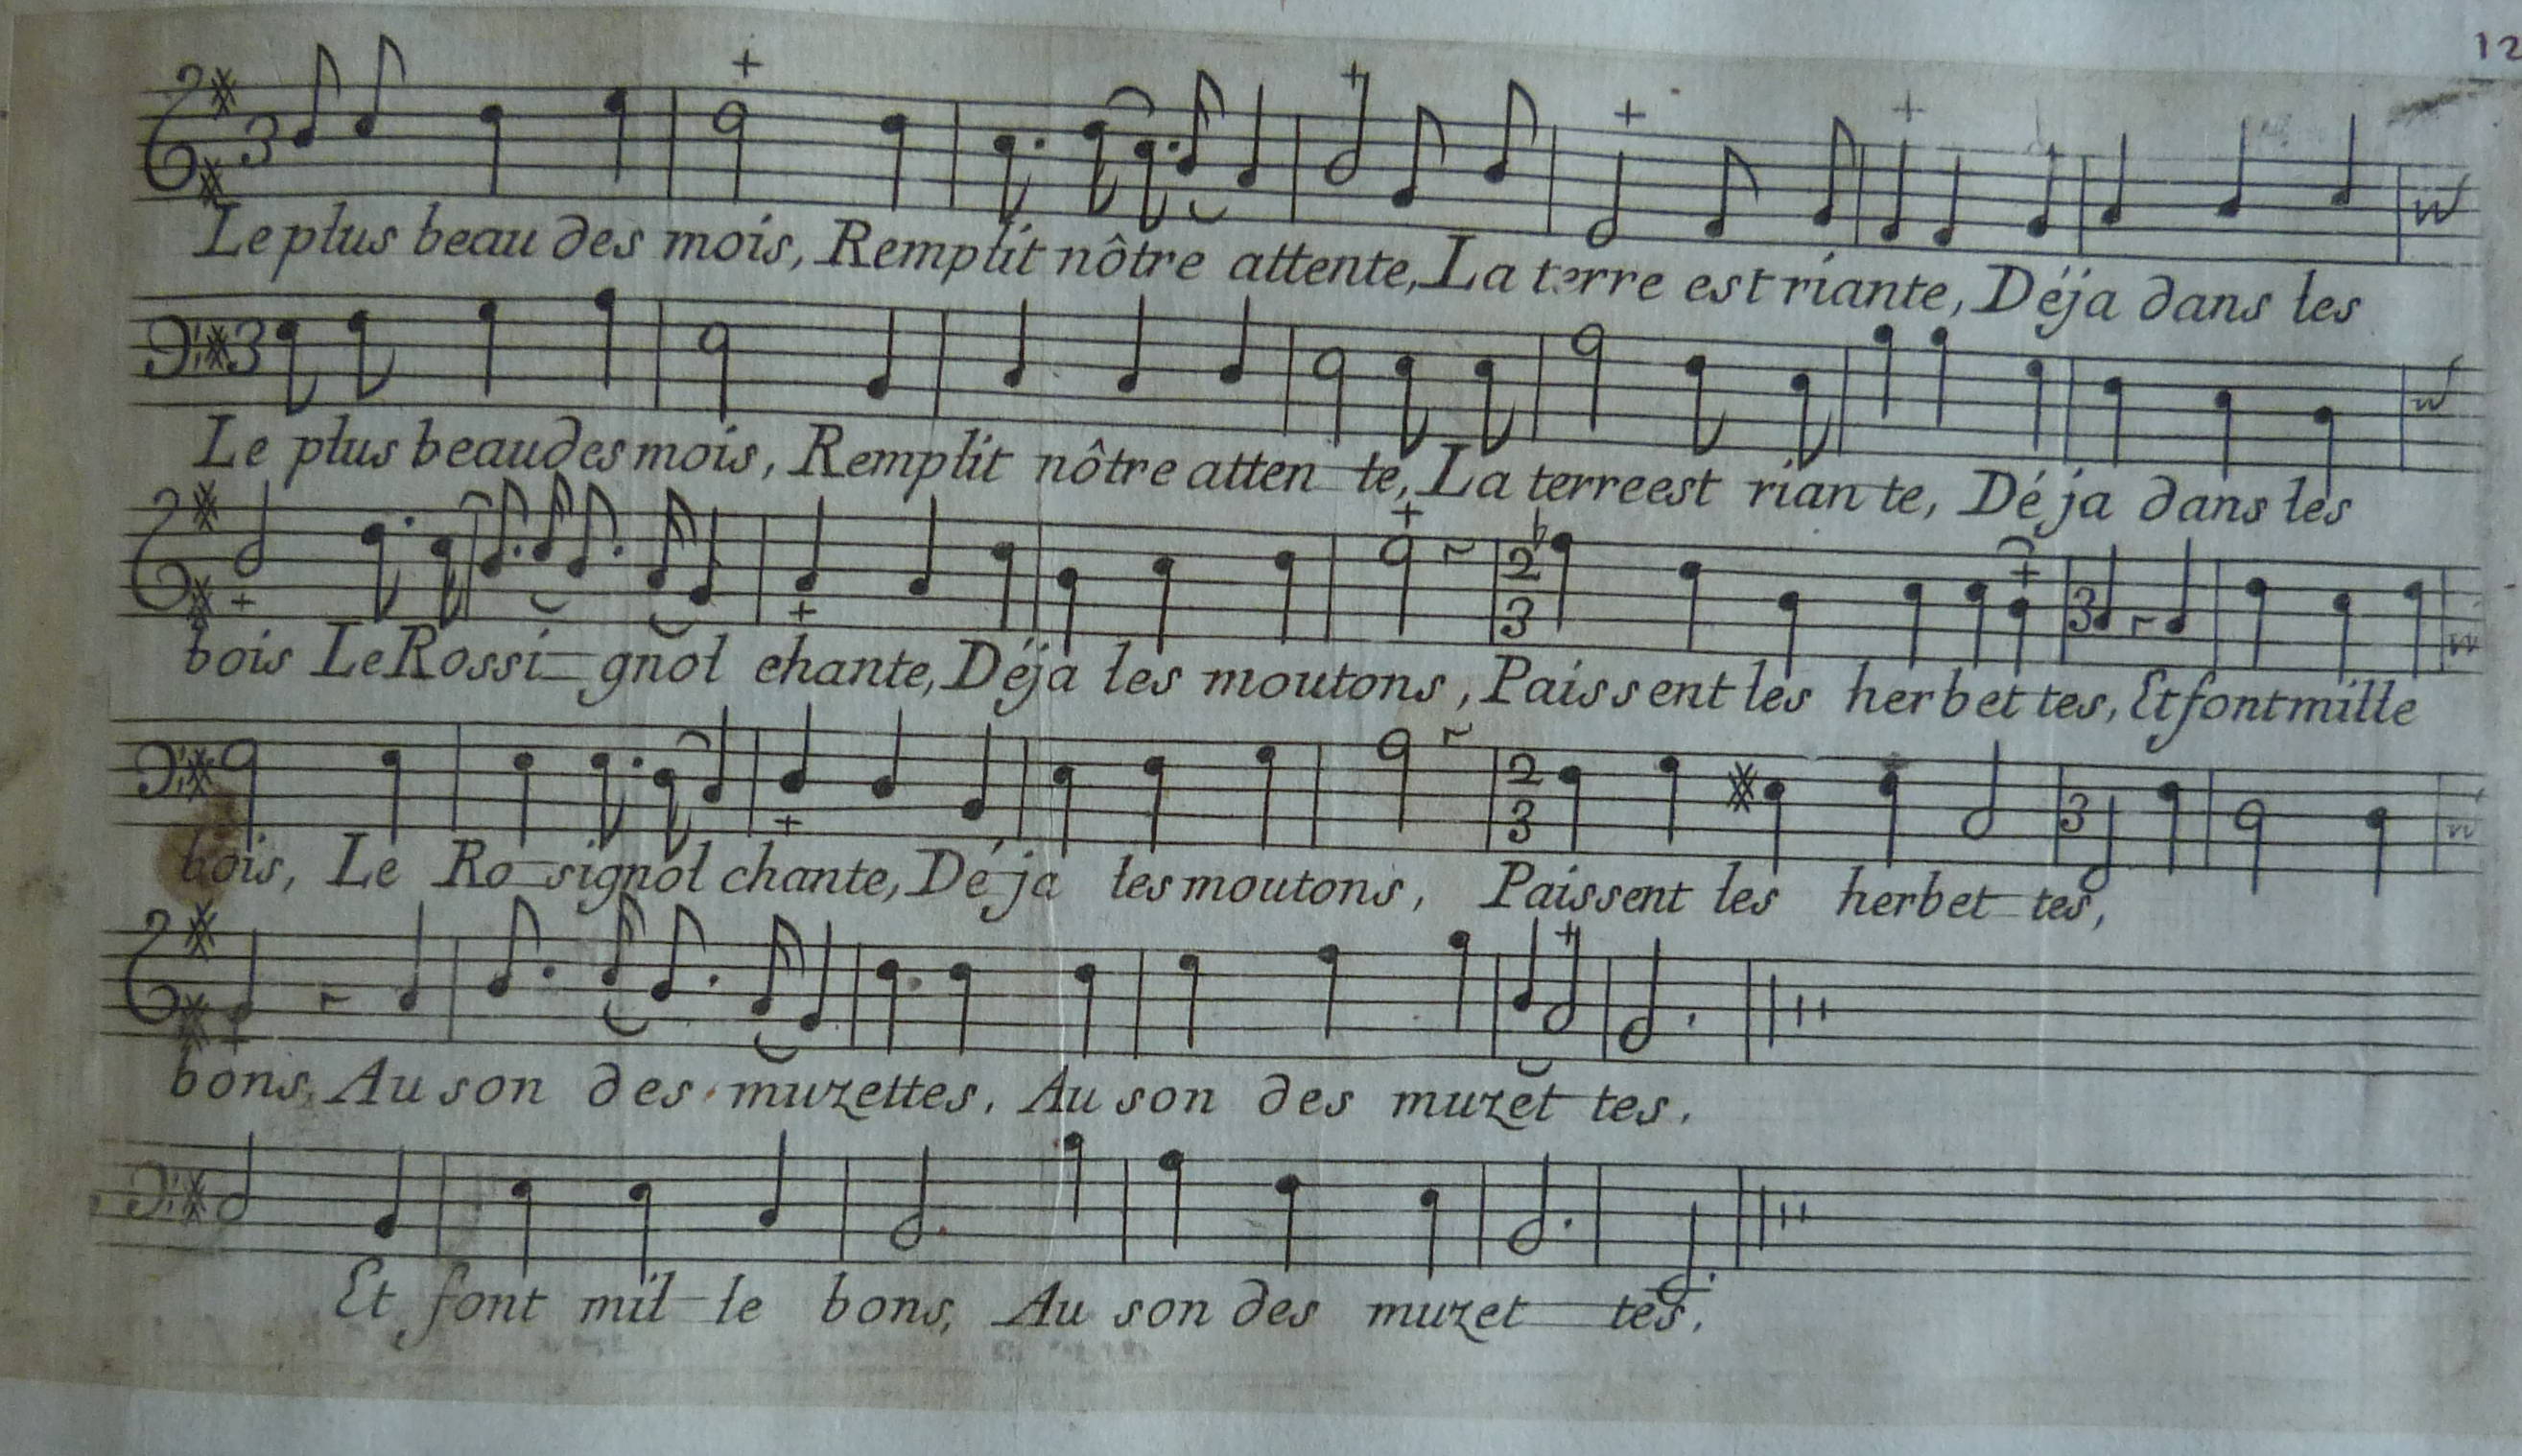 12
3
Le plus beau des mois, Remplit nôtre attente, La terre est riante, Déja dans les
3
Le plus beau des mois, Remplit nôtre atten te, La terre est rian te, Dé ja dans les
2 3 3
bois Le Rossi gnol chante, Déja les moutons, Paissent les herbet tes, Et font mille
2 3 3
bois, Le Ro signol chante, Dé ja les moutons, Paissent les herbet tes,
bons, Au son des muzettes. Au son des muzet tes.
Et font mil le bons, Au son des muzet tes.